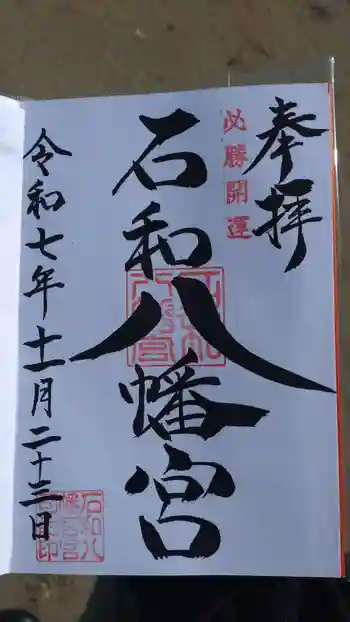 奉拝
必勝開運
石和八幡宮
令和七年十一月二十三日
石和八幡宮